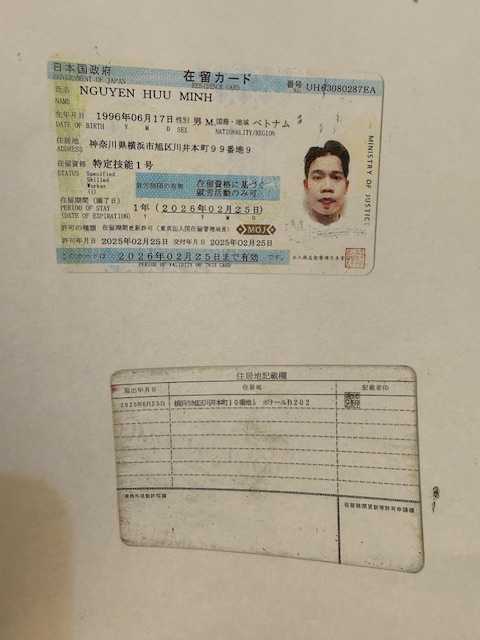 日本国政府 在留カード 番号 UH63080287EA
GOVERNMENT OF JAPAN RESIDENCE CARD No.
氏名 NGUYEN HUU MINH
NAME
生年月日 1996年06月17日 性別 男 M. 国籍・地域 ベトナム
DATE OF BIRTH Y M D SEX NATIONALITY/REGION
住居地 神奈川県横浜市旭区川井本町99番地9
ADDRESS
在留資格 特定技能1号
STATUS Specified
Skilled
Worker
(i)
就労制限の有無 在留資格に基づく
就労活動のみ可
在留期間(満了日) 1年(2026年02月25日)
PERIOD OF STAY
(DATE OF EXPIRATION) Y Y M D
許可の種類 在留期間更新許可(東京出入国在留管理局長) MOJ
許可年月日 2025年02月25日 交付年月日 2025年02月25日
このカードは 2026年02月25日まで有効 です。
PERIOD OF VALIDITY OF THIS CARD
MINISTRY OF JUSTICE
住居地記載欄
届出年月日 住居地 記載者印
川井本町10番地 202
在留期間更新等許可申請欄